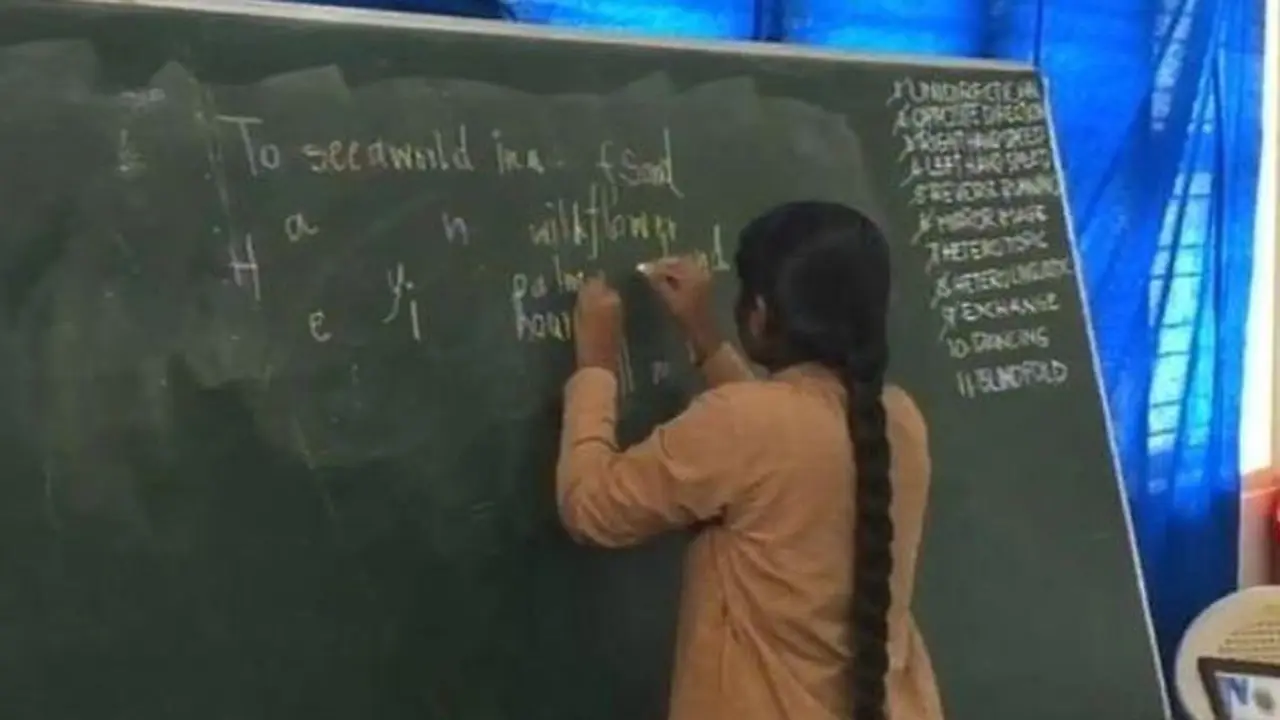 To see a world in a f Sand
a n wildflower
H palm nd
e y i hour
1 UNIDIRECTIONAL
2 OPPOSITE DIRECTION
3 RIGHT HAND SPEED
4 LEFT HAND SPEED
5 REVERSE RUNNING
6 MIRROR IMAGE
7 HETEROTOPIC
8 HETEROLINGUISTIC
9 EXCHANGE
10 DANCING
11 BLINDFOLD
N